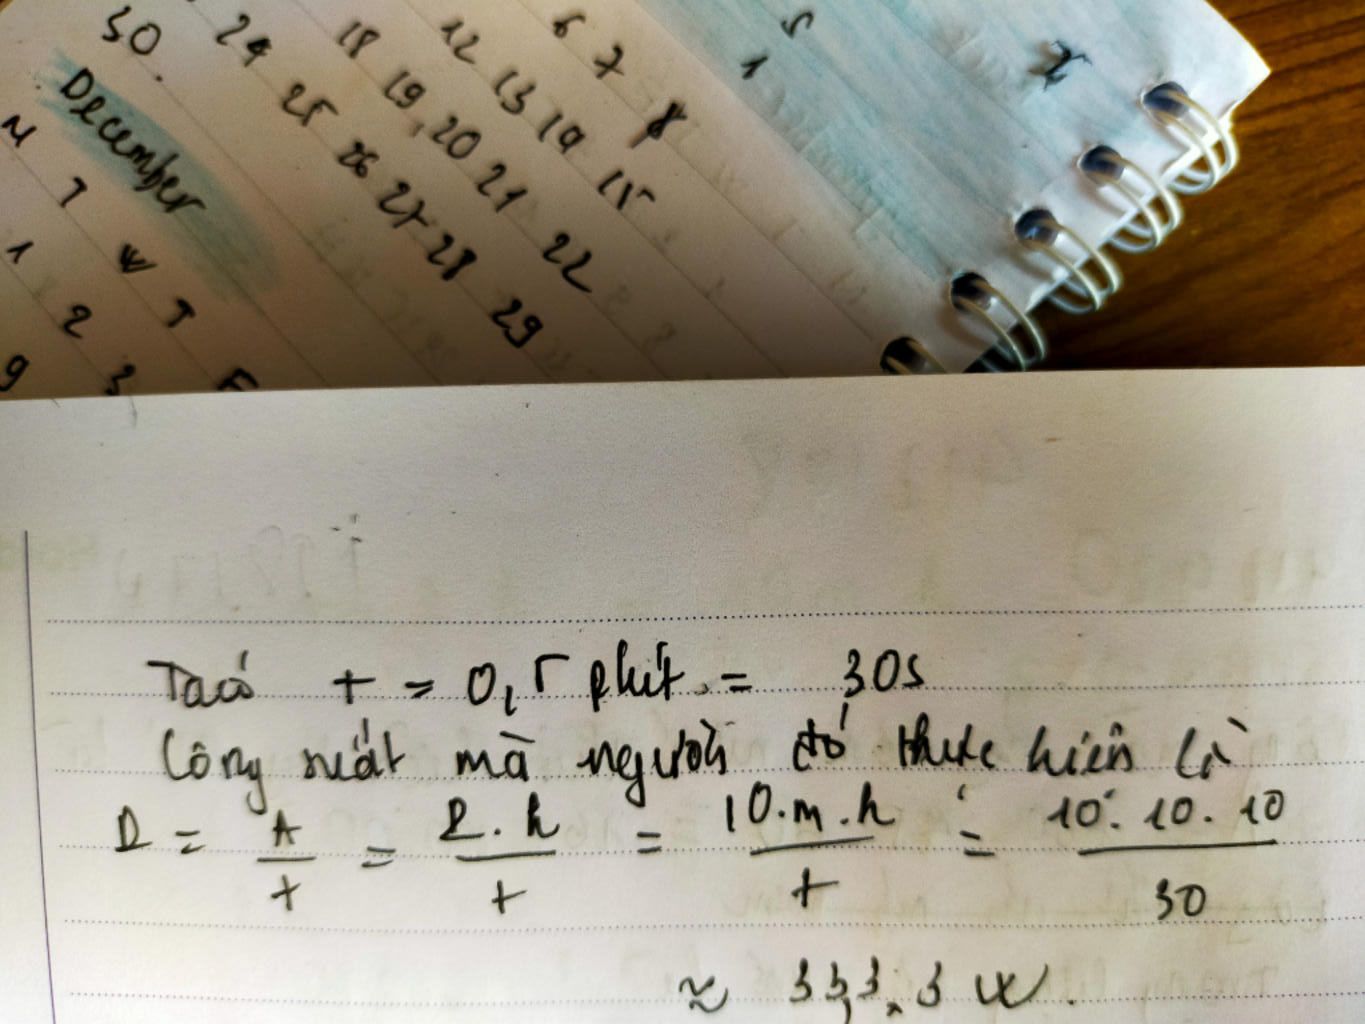 30.
24
18
12
6
5
25
19
13
7
1
26
20
14
8
27
21
15
28
22
29
December
M T W T F
1 2 3
9
Ta có t = 0,5 phút = 30s
Công suất mà người đó thực hiện là
P = A/t = P.h/t = 10.m.h/t = 10.10.10/30
≈ 33,3 W.